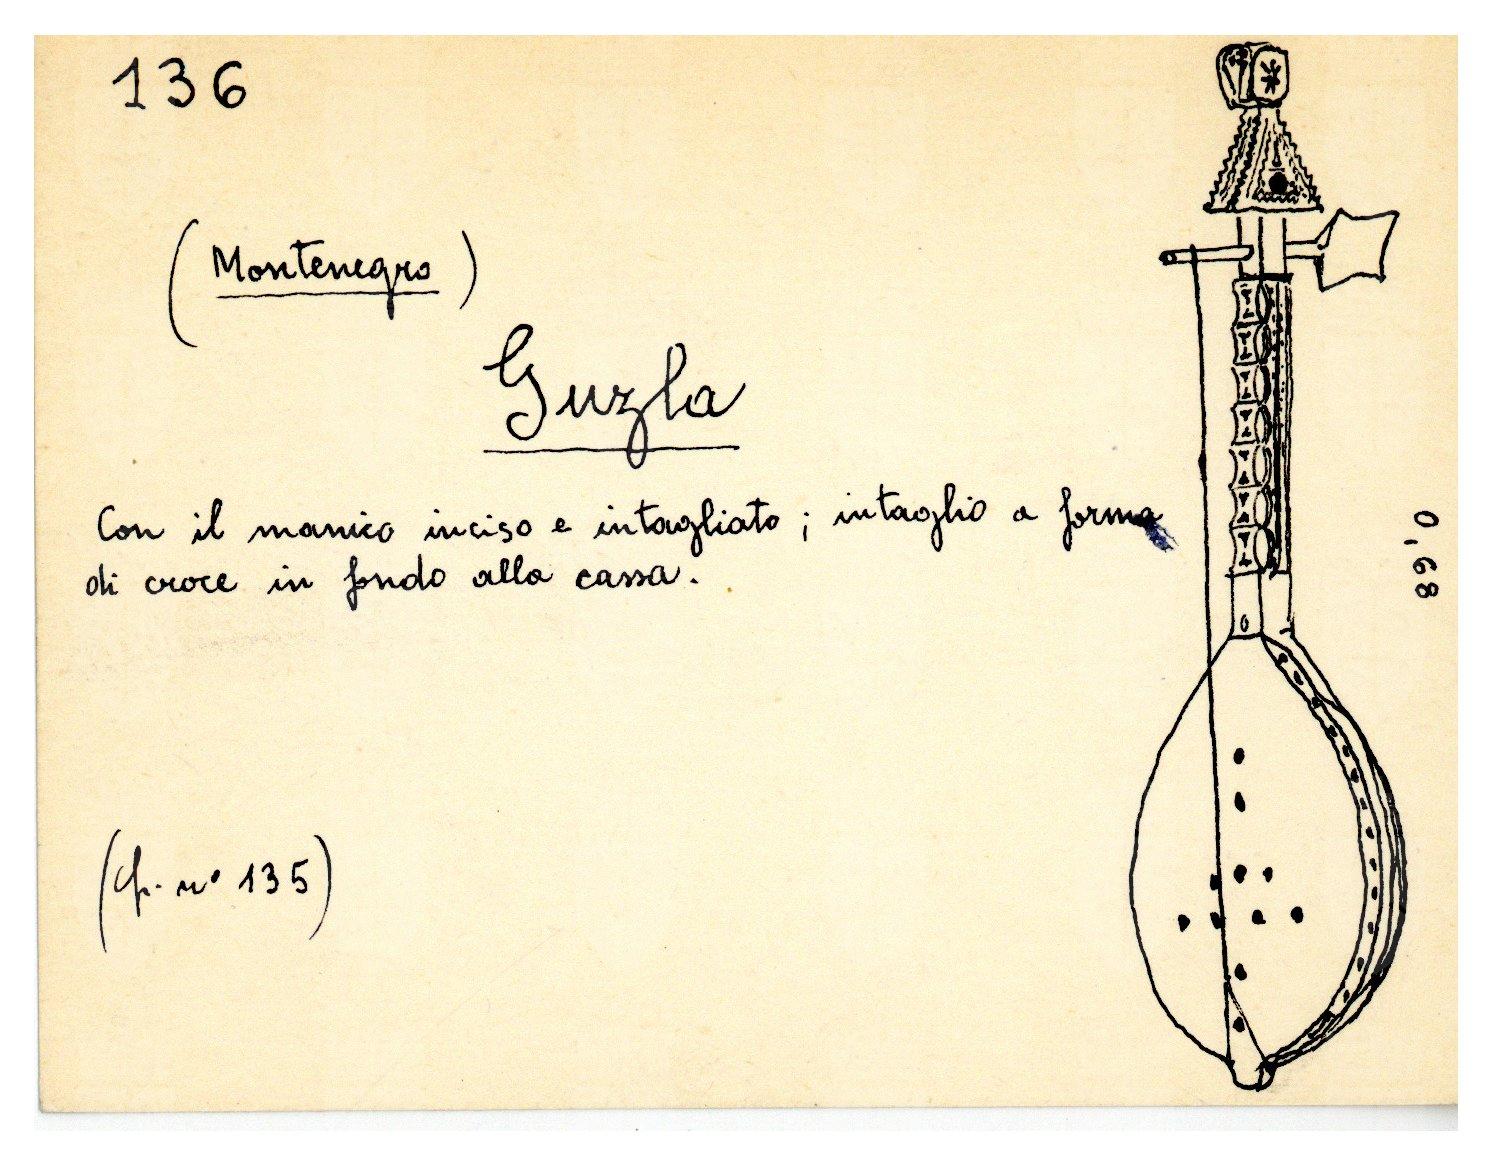 136
(Montenegro)
Guzla
Con il manico inciso e intagliato; intaglio a forma
di croce in fondo alla cassa.
(Cfr. n° 135)
0,68